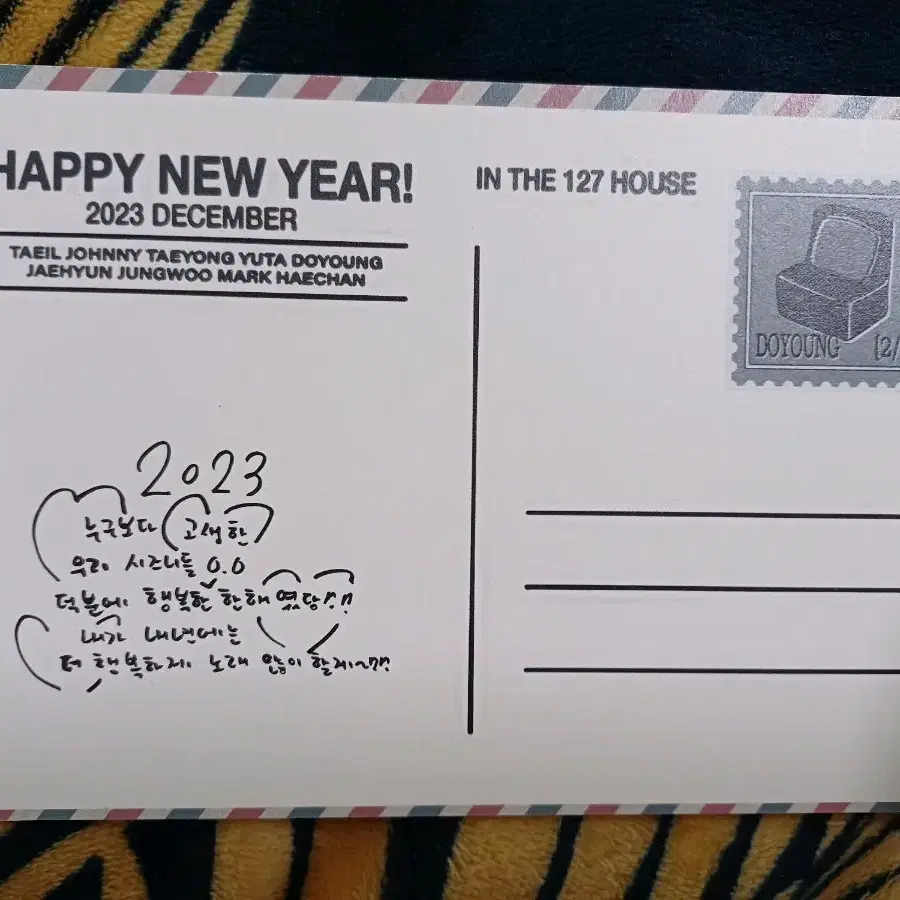 HAPPY NEW YEAR!
2023 DECEMBER
TAEIL JOHNNY TAEYONG YUTA DOYOUNG
JAEHYUN JUNGWOO MARK HAECHAN
2023
누구보다 고생한
우리 시즈니들 0.0
덕분에 행복한 한해 였당!!
내가 내년에는
더 행복하게 노래 많이 할게~!!
IN THE 127 HOUSE
DOYOUNG [2/